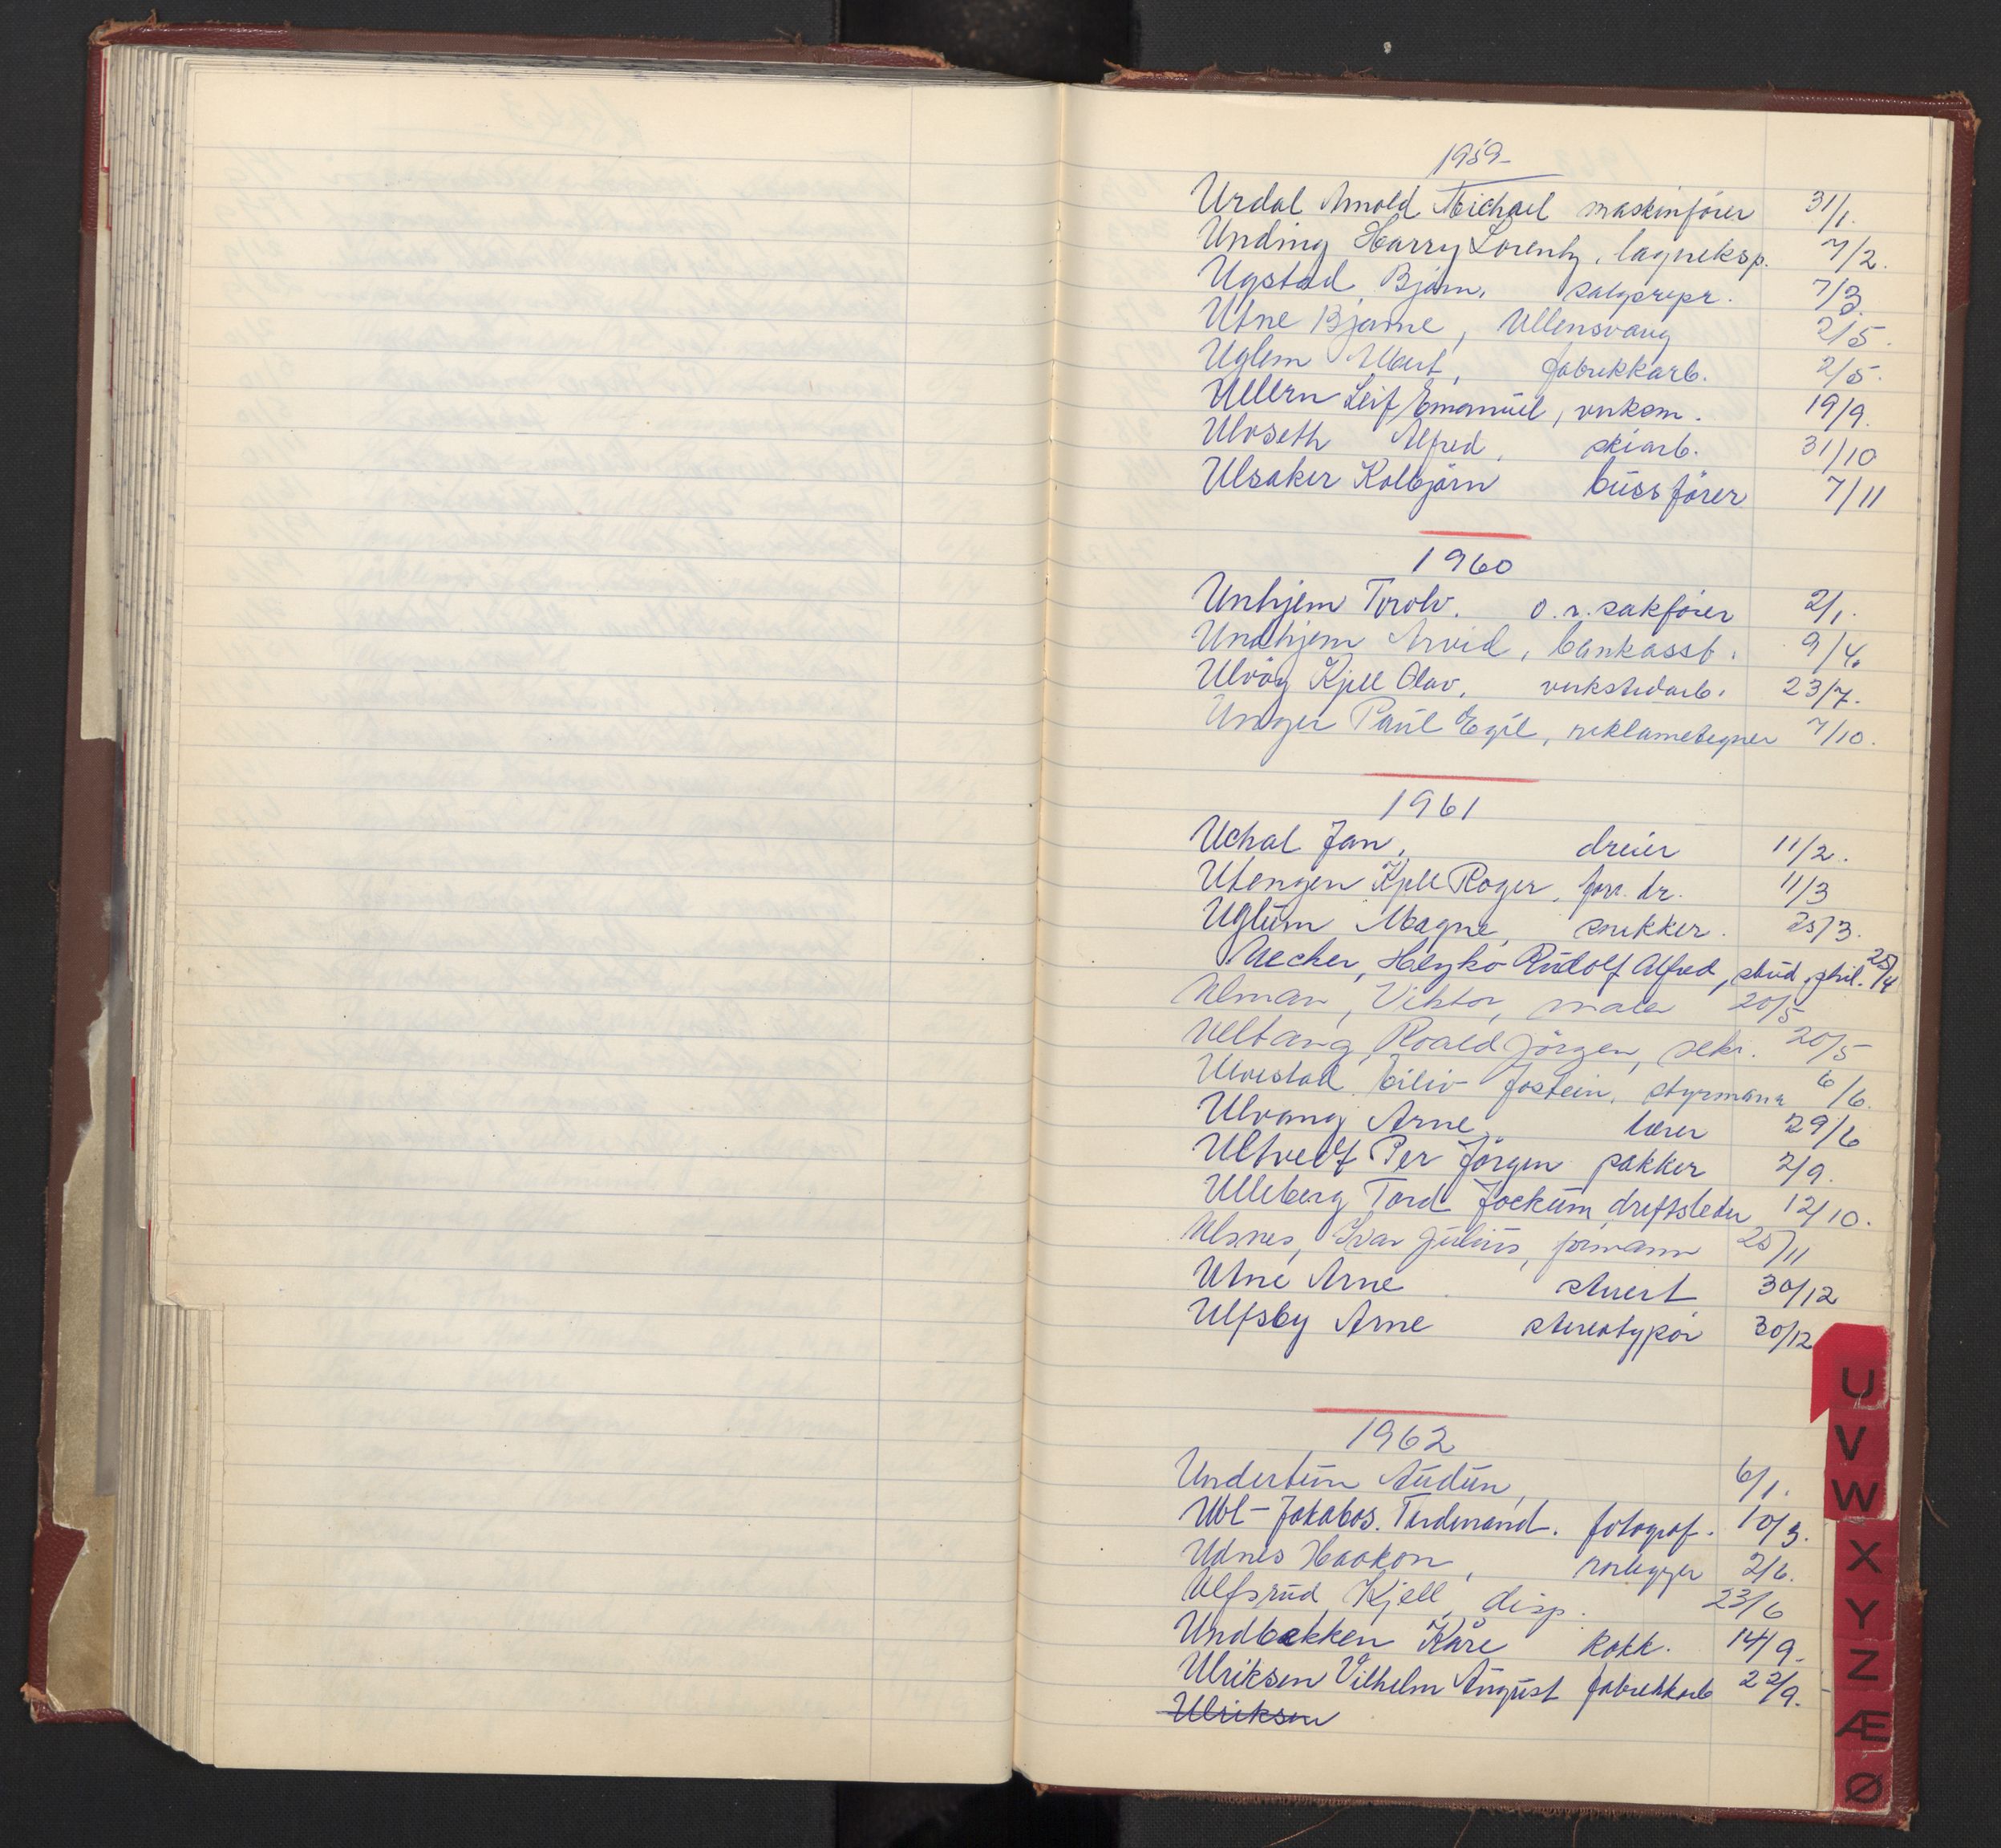 1959
Urdal Arnold Michael maskinförer 31/1.
Unding Harry Lorentz, lagereksp. 7/2.
Ugstad Bjørn, salgsrepr. 7/3.
Utne Bjarne, Ullensvang 2/5.
Uglem Albert, fabrikkarb. 2/5.
Ullern Leif Emanuel, verksm. 19/9.
Ulvseth Alfred, skiarb. 31/10
Ulsaker Kolbjörn bussförer 7/11
1960
Unhjem Torolv. o.r.sakförer 2/1.
Undhjem Arvid, bankasst. 9/4.
Ulvög Kjell Olav. verkstedarb. 23/7.
Unger Paul Egil, reklametegner 7/10.
1961
Uchal Jan, dreier 11/2.
Utengen Kjell Roger, forr. dr. 11/3
Uglum Magne, snekker. 25/3.
Uecker, Heyko Rudolf Alfred, stud. phil. 25/4
Ulman, Viktor, maler 20/5
Ulltang, Roald Jörgen, sekr. 20/5
Ulvestad Eiliv Jostein, styrmann 6/6.
Ulvang Arne, lærer 29/6
Ultvedt Per Jörgen pakker 2/9.
Ulleberg Tord Jockum, driftsleder 12/10.
Ulsnes, Ivar Julius, formann 25/11
Utne Arne stuert 30/12
Ulfsby Arne stereotypör 30/12
1962
Undertun Audun, 6/1.
Ubl-Jakabos. Ferdinand. fotograf. 10/3.
Udnes Haakon, rørlegger 2/6.
Ulfsrud Kjell, disp. 23/6
Undbekken Kåre kokk. 14/9.
Ulriksen Vilhelm August fabrikkarb 22/9.
Ulriksen
U
V
W
X
Y
Z
Æ
Ø